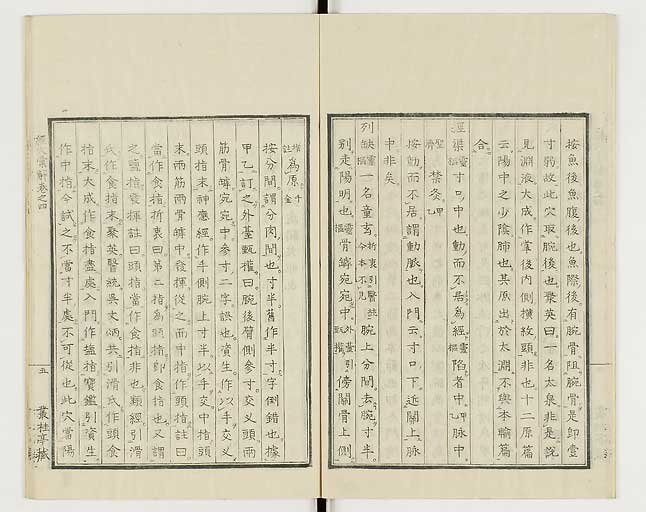 按魚後魚腹後也魚際後有腕骨阻腕骨是即壹
寸弱故此穴取腕後也聚英曰一名太泉非是說
見淵液大成作掌後內側橫紋頭非也十二原篇
云陽中之少陰肺也其原出於太淵不與本輸篇
合
經渠靈樞寸口中也動而不居為經靈樞陷者中甲乙脉中
聖濟禁灸甲乙
按動而不居謂動脉也入門云寸口下近關上脉
中非矣
列缺靈樞一名童玄折衷引醫統今本不見腕上分間去腕寸半
別走陽明也靈樞骨罅宛宛中外臺引甄權傍關骨上側
為原千金
按分間謂分肉間也寸半舊作半寸字倒錯也據
甲乙訂之外臺甄權曰腕後臂側參寸交乂頭兩
筋骨罅宛宛中參寸二字誤也資生作以手交乂
頭指末神應經作手側腕上寸半以手交中指頭
末兩筋兩骨罅中發揮從之而中指作頭指註曰
當作食指折衷曰第二指為頭指即食指也又謂
之鹽指發揮註曰頭指當作食指非也類經引滑
氏作食指末聚英醫統吳文炳共引滑氏作頭食
指末大成作食指盡處入門作鹽指寶鑑引資生
作中指今試之不當寸半處不可從也此穴當陽
彙解卷之四
五
叢桂亭藏